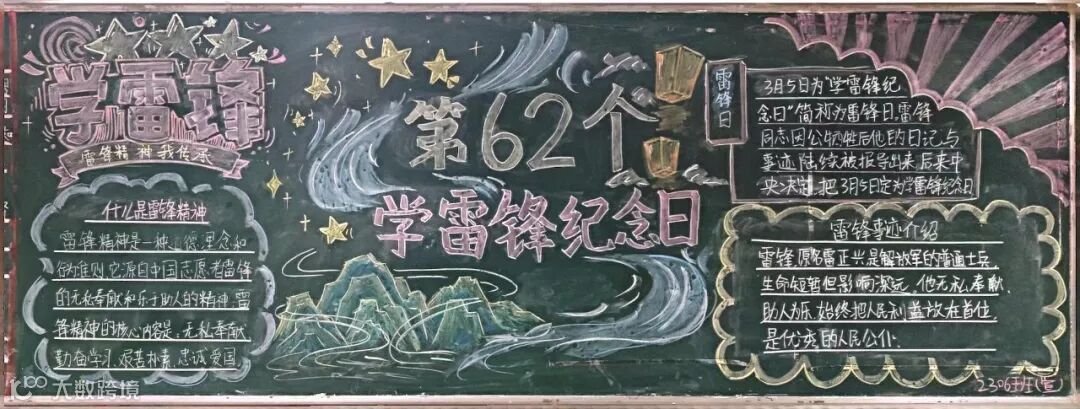 学雷锋
雷锋精神我传承
什么是雷锋精神
雷锋精神是一种道德理念和
行为准则它源自中国志愿者雷锋
的无私奉献和乐于助人的精神,雷
锋精神的核心内容是:无私奉献
勤奋学习,艰苦朴素,忠诚爱国
第62个
学雷锋纪念日
雷锋日
3月5日为"学雷锋纪
念日"简称为雷锋日,雷锋
同志因公牺牲后他的日记与
事迹,陆续被报导出来,后来中
央决定,把3月5日定为学雷锋纪念日
雷锋事迹介绍
雷锋,原名雷正兴,是解放军的普通士兵,
生命短暂但影响深远,他无私奉献,
助人为乐,始终把人民利益放在首位,
是优秀的人民公仆.
2306班(宣)
大数跨境